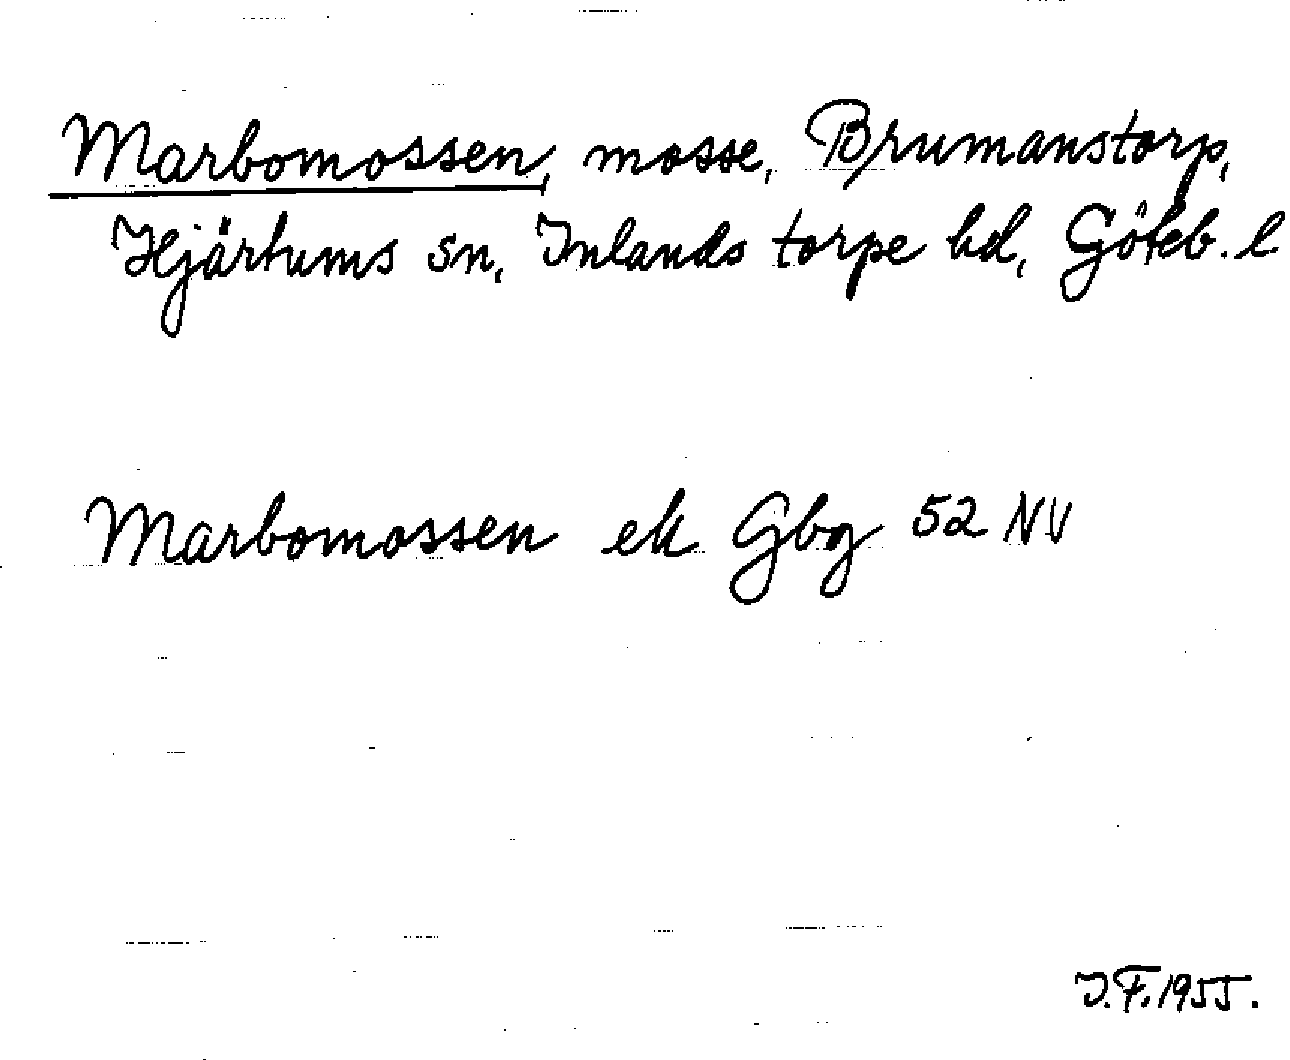 Marbomossen, mosse, Brumanstorp,
Hjärtums sn, Inlands torpe hd, Göteb. l
Marbomossen ek Gbg 52 NV
J.F. 1955.